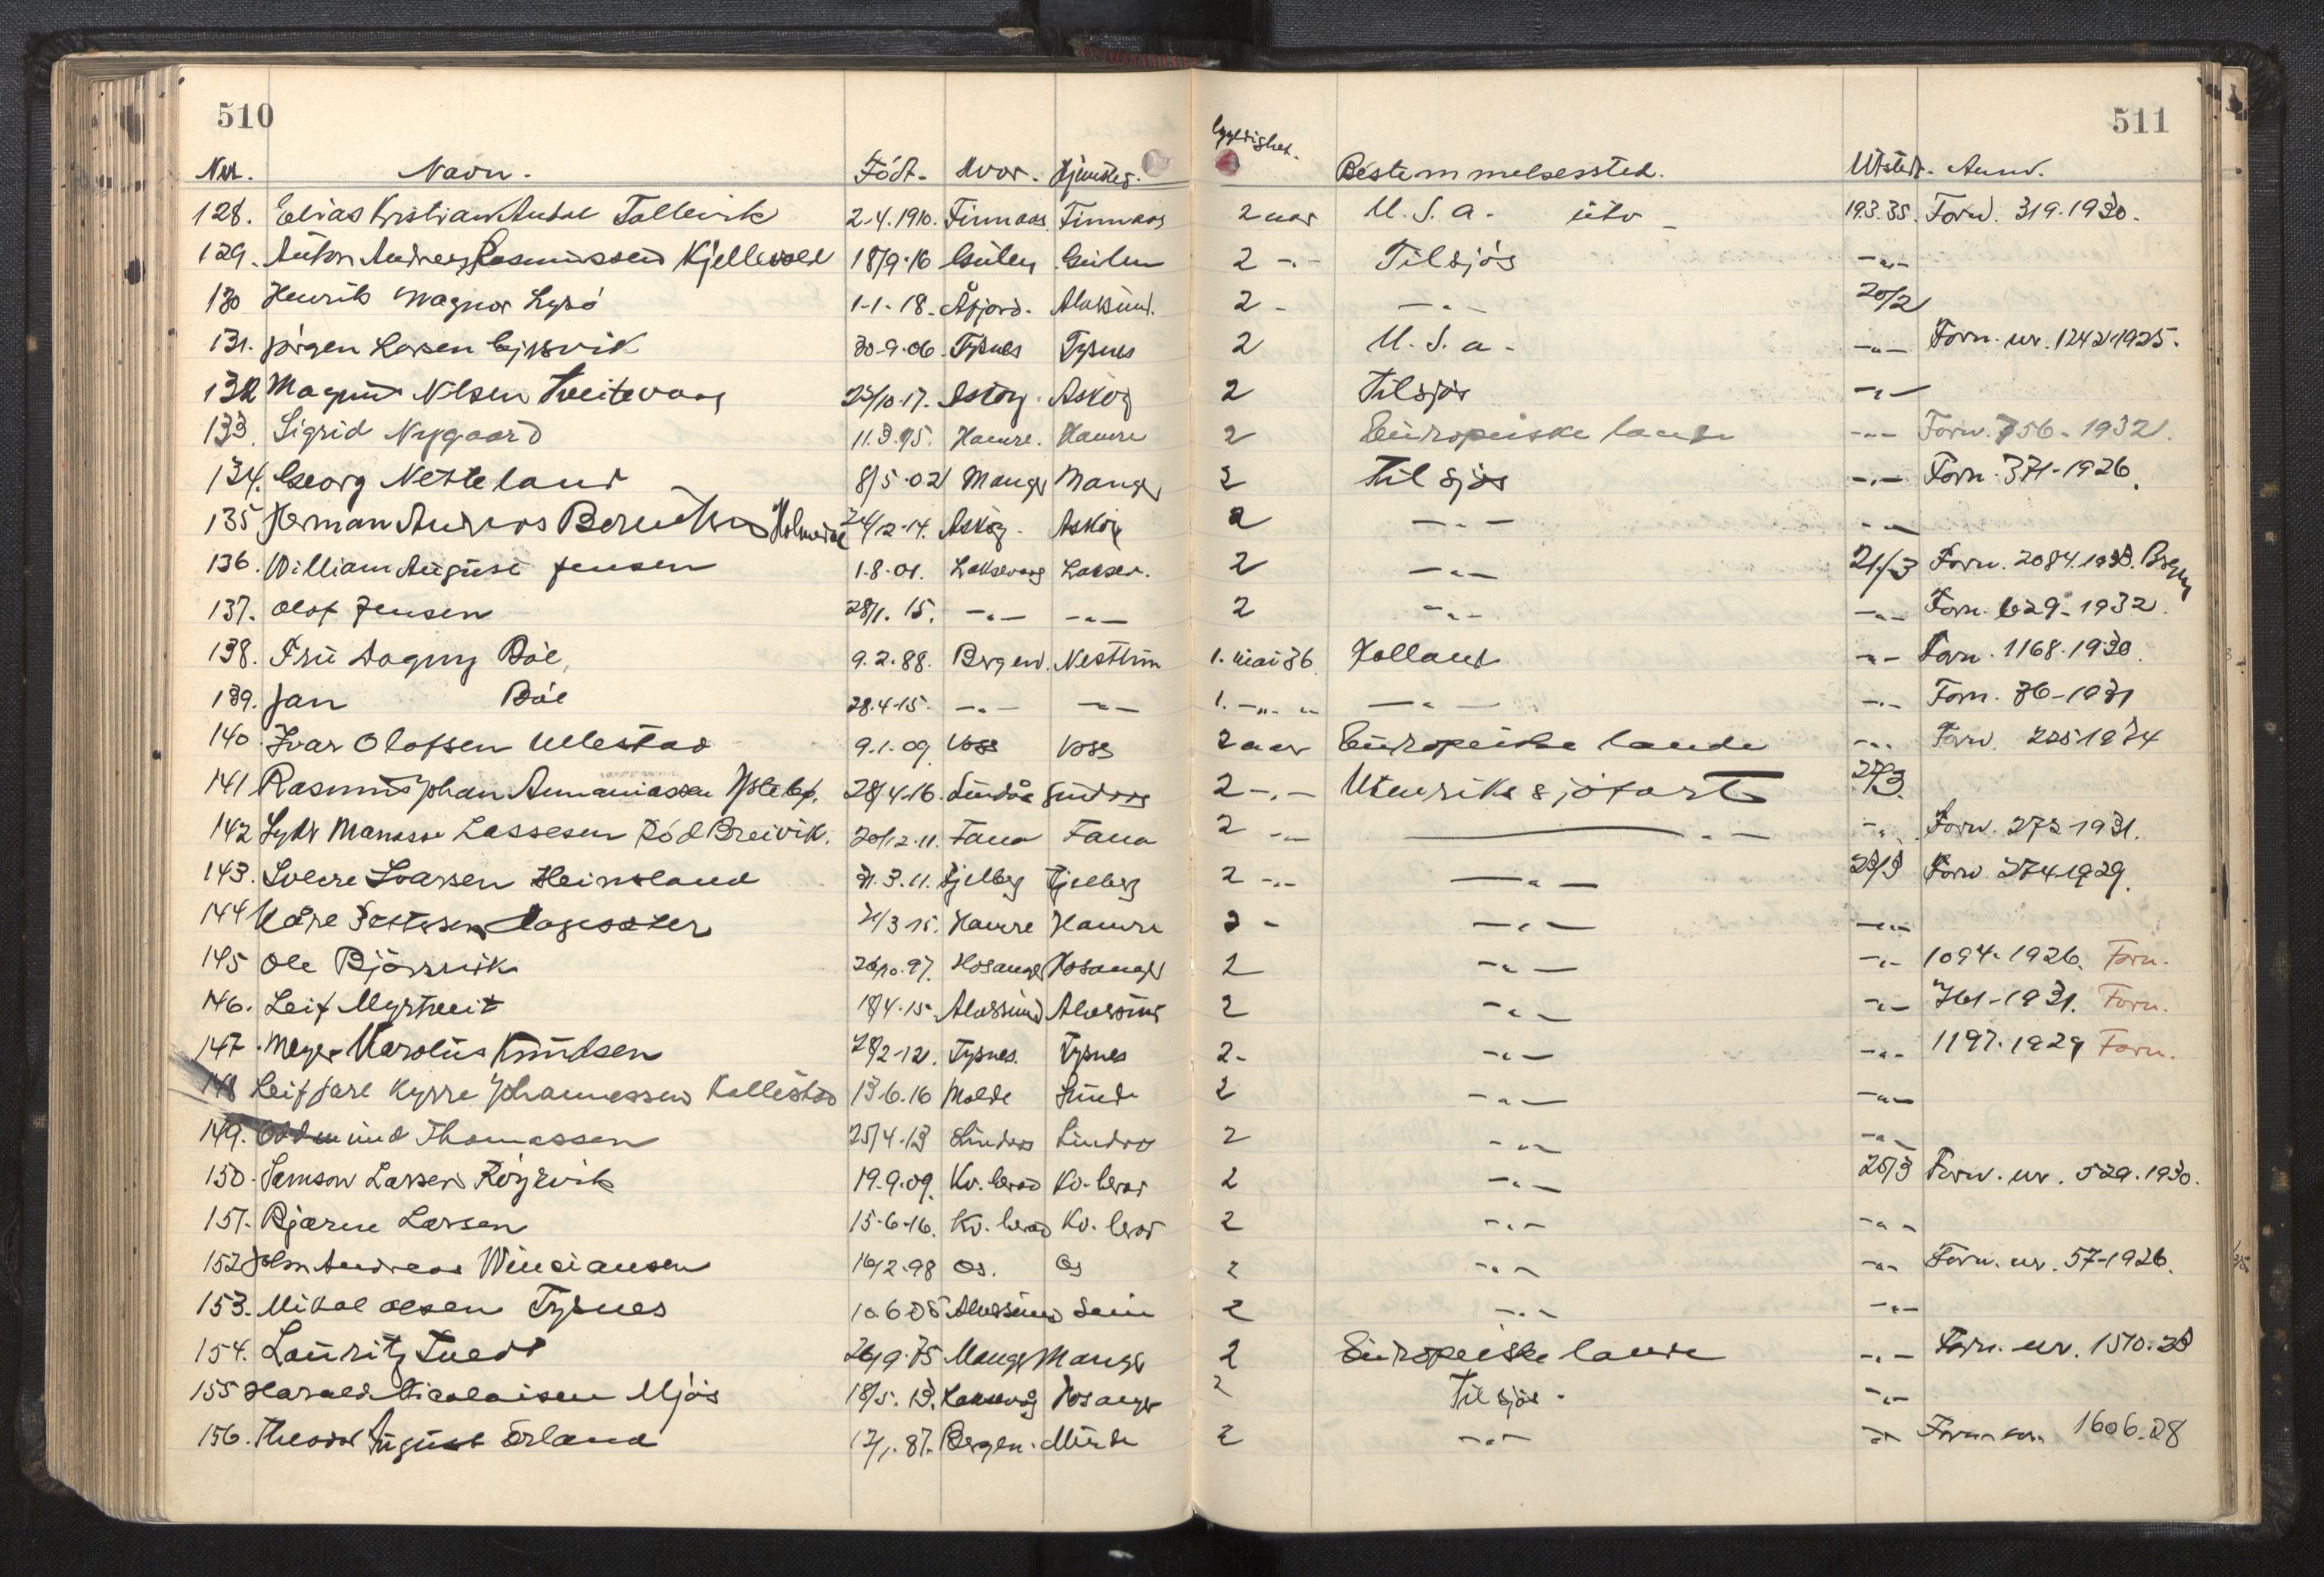 510
511
Nr. Navn. Født. Hvor. Hjemsted. Gyldighet. Bestemmelsessted. Utstedt. Anm.
128. Elias Kristian Andal Tollevik 2-4.1910. Finnaas Finnaas 2 aar U.S.a. utv 19.3.35. Forn. 319-1930.
129. Anton Andreas Rasmussen Kjellevold 18/9-16 Gulen Gulen 2 -"- Tilsjøs -"-
130 Henrik Magnor Lysø 1-1-18. Åfjord. Alversund. 2 - -"- 20/2
131. Jørgen Larsen Gjersvik 30-9-06 Tysnes Tysnes 2 U.S.a. -"- Forn. nr. 1242-1925.
132 Magnus Nilsen Tveitevaag 23/10-17. Askøy. Askøy 2 Tilsjøs -"-
133. Sigrid Nygaard 11.3.95. Hamre. Hamre 2 Europeiske lande -"- Forn. 756-1932.
134. Georg Netteland 8/5-02 Manger Manger 2 Til sjøs -"- Forn. 371-1926.
135 Herman Andreas Holmedal 24/12-14. Askøy. Askøy 2 -"- -"-
136. William August Jensen 1-8-01. Laksevaag Laksev. 2 -"- 21/3 Forn. 2084.1933. Bergen
137. Olof Jensen 28/1. 15. -"- -"- 2 -"- -"- Forn. 629-1932.
138. Fru Dagny Bøe, 9.2.88. Bergen. Nesttun 1. mai 36 Holland -"- Forn. 1168-1930.
139. Jan Bøe 28.4-15. -"- -"- 1. -"- " -"- -"- Forn. 36-1931
140. Ivar Olofsen Ullestad 9.1.09 Voss Voss 2 aar Europeiske lande -"- Forn. 225 1934
141 Rasmus Johan Annaniassen 28/4-16. Lindås Lindaas 2 -"- Utenriks sjøfart 22/3.
142 Lydv Manasse Lassesen Rød Breivik. 20/12-11. Fana Fana 2 -"- -"- -"- Forn. 272-1931.
143. Sverre Ivarsen Heimsland 31.3.11. Fjelberg Fjelberg 2 -"- -"- 23/3 Forn. 274-1929.
144 Kåre Pettersen 21/3 15. Hamre Hamre 2 - -"- -"-
145 Ole Bjørsvik 26/10.97. Hosanger Hosanger 2 -"- -"- 1094-1926. Forn.
146. Leif Myrtveit 18/4-15. Alversund Alversund 2 -"- -"- 761-1931. Forn.
147. Meyer Karolus Knudsen 28/2-12. Tysnes. Tysnes 2- -"- -"- 1197-1929 Forn.
148 Leif Jarl Kyrre Johannessen Kallestad 13-6.16 Molde Sund 2 -"- -"-
149. Oddmund Thomassen 25/4-13 Lindaas Lindaas 2 -"- -"-
150. Samson Larsen Røyrvik 19.9.09. Kv.herad Kv.herad 2 -"- 25/3 Forn. nr. 529.1930.
151. Bjarne Larsen 15-6-16. Kv. herad Kv. herad 2 -"- -"-
152 John Andreas Vinciansen 16/2-98 Os. Os 2 -"- -"- Forn. nr. 57-1926.
153. Mikal Olsen Tysnes 10.6-05 Alversund Seim 2 -"- -"-
154. Lauritz Tvedt 26/9-75 Manger Manger 2 Europeiske lande -"- Forn. nr. 1510.28
155 Harald Nicolaisen Mjøs 18/5. 13. Laksevåg Hosanger 2 Til sjøs. -"-
156. Theodor August Erland 17/1. 87. Bergen. 2 -"- -"- Forn nr. 1606-28